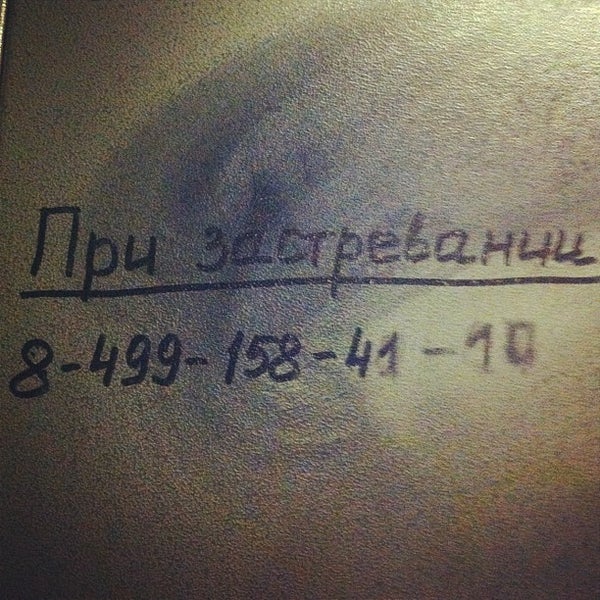 При застревании
8-499-158-41-10